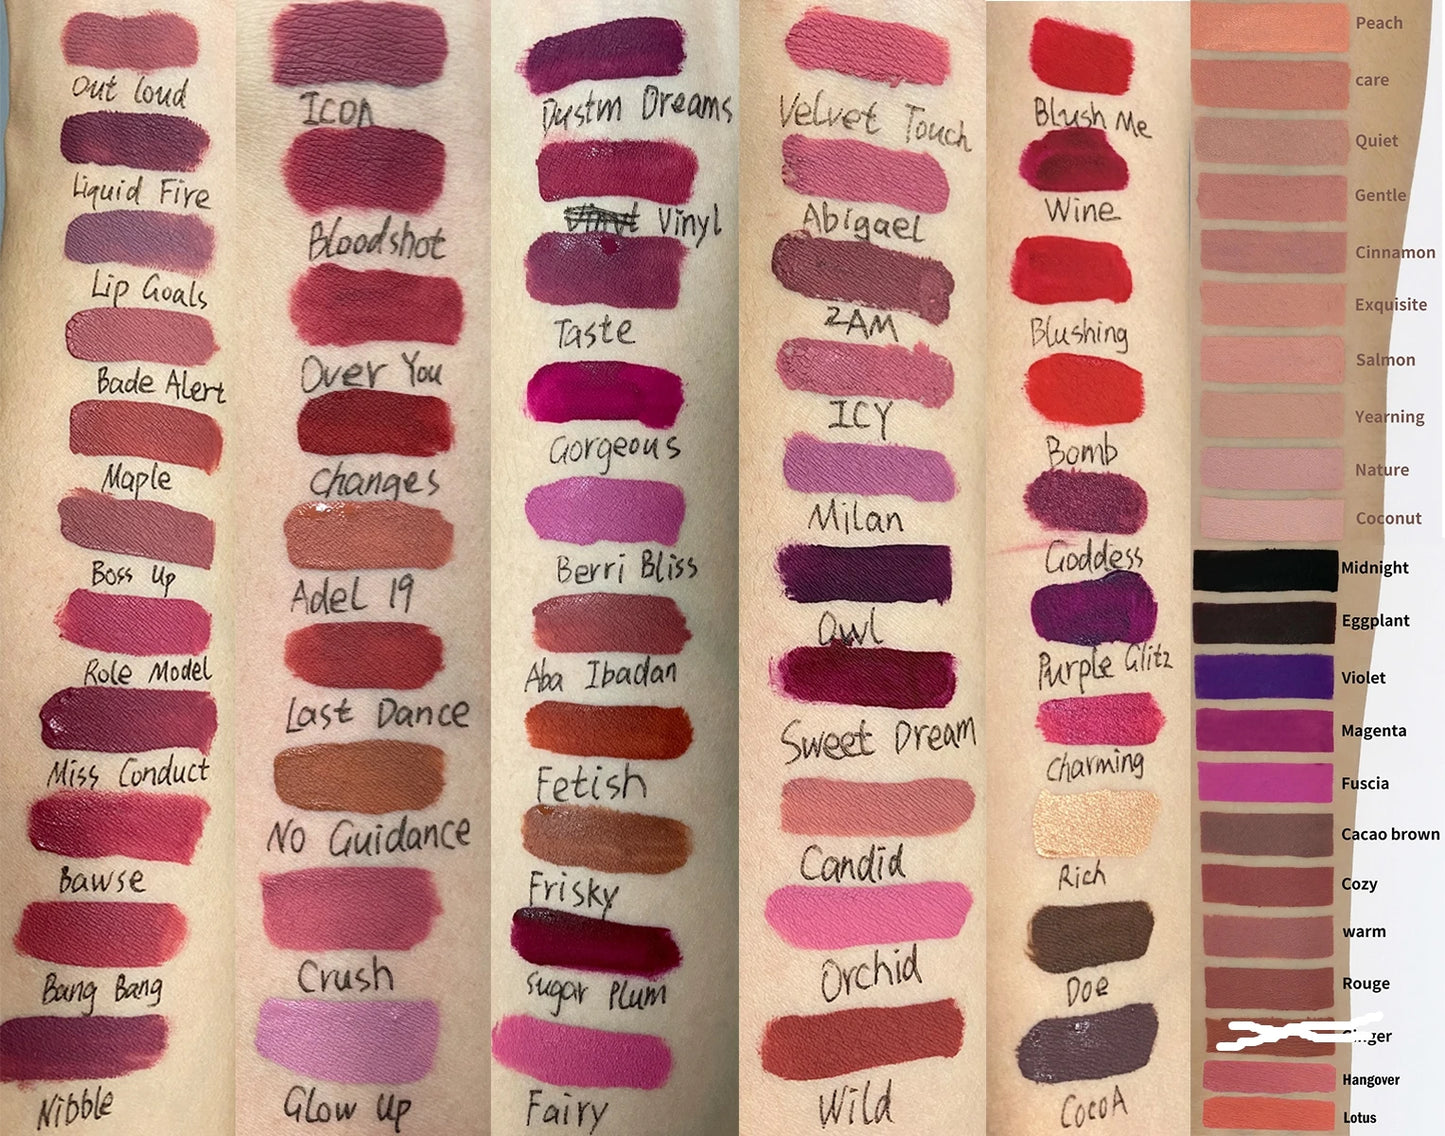 Out loud
Liquid Fire
Lip Goals
Bade Alert
Maple
Boss Up
Role Model
Miss Conduct
Bawse
Bang Bang
Nibble
ICON
Bloodshot
Over You
Changes
Adel 19
Last Dance
No Guidance
Crush
Glow Up
Dustm Dreams
Vinyl
Taste
Gorgeous
Berri Bliss
Aba Ibadan
Fetish
Frisky
Sugar Plum
Fairy
Velvet Touch
Abigael
2AM
ICY
Milan
Owl
Sweet Dream
Candid
Orchid
Wild
Blush Me
Wine
Blushing
Bomb
Goddess
Purple Glitz
Charming
Rich
Doe
CocoA
Peach
care
Quiet
Gentle
Cinnamon
Exquisite
Salmon
Yearning
Nature
Coconut
Midnight
Eggplant
Violet
Magenta
Fuscia
Cacao brown
Cozy
warm
Rouge
Hangover
Lotus